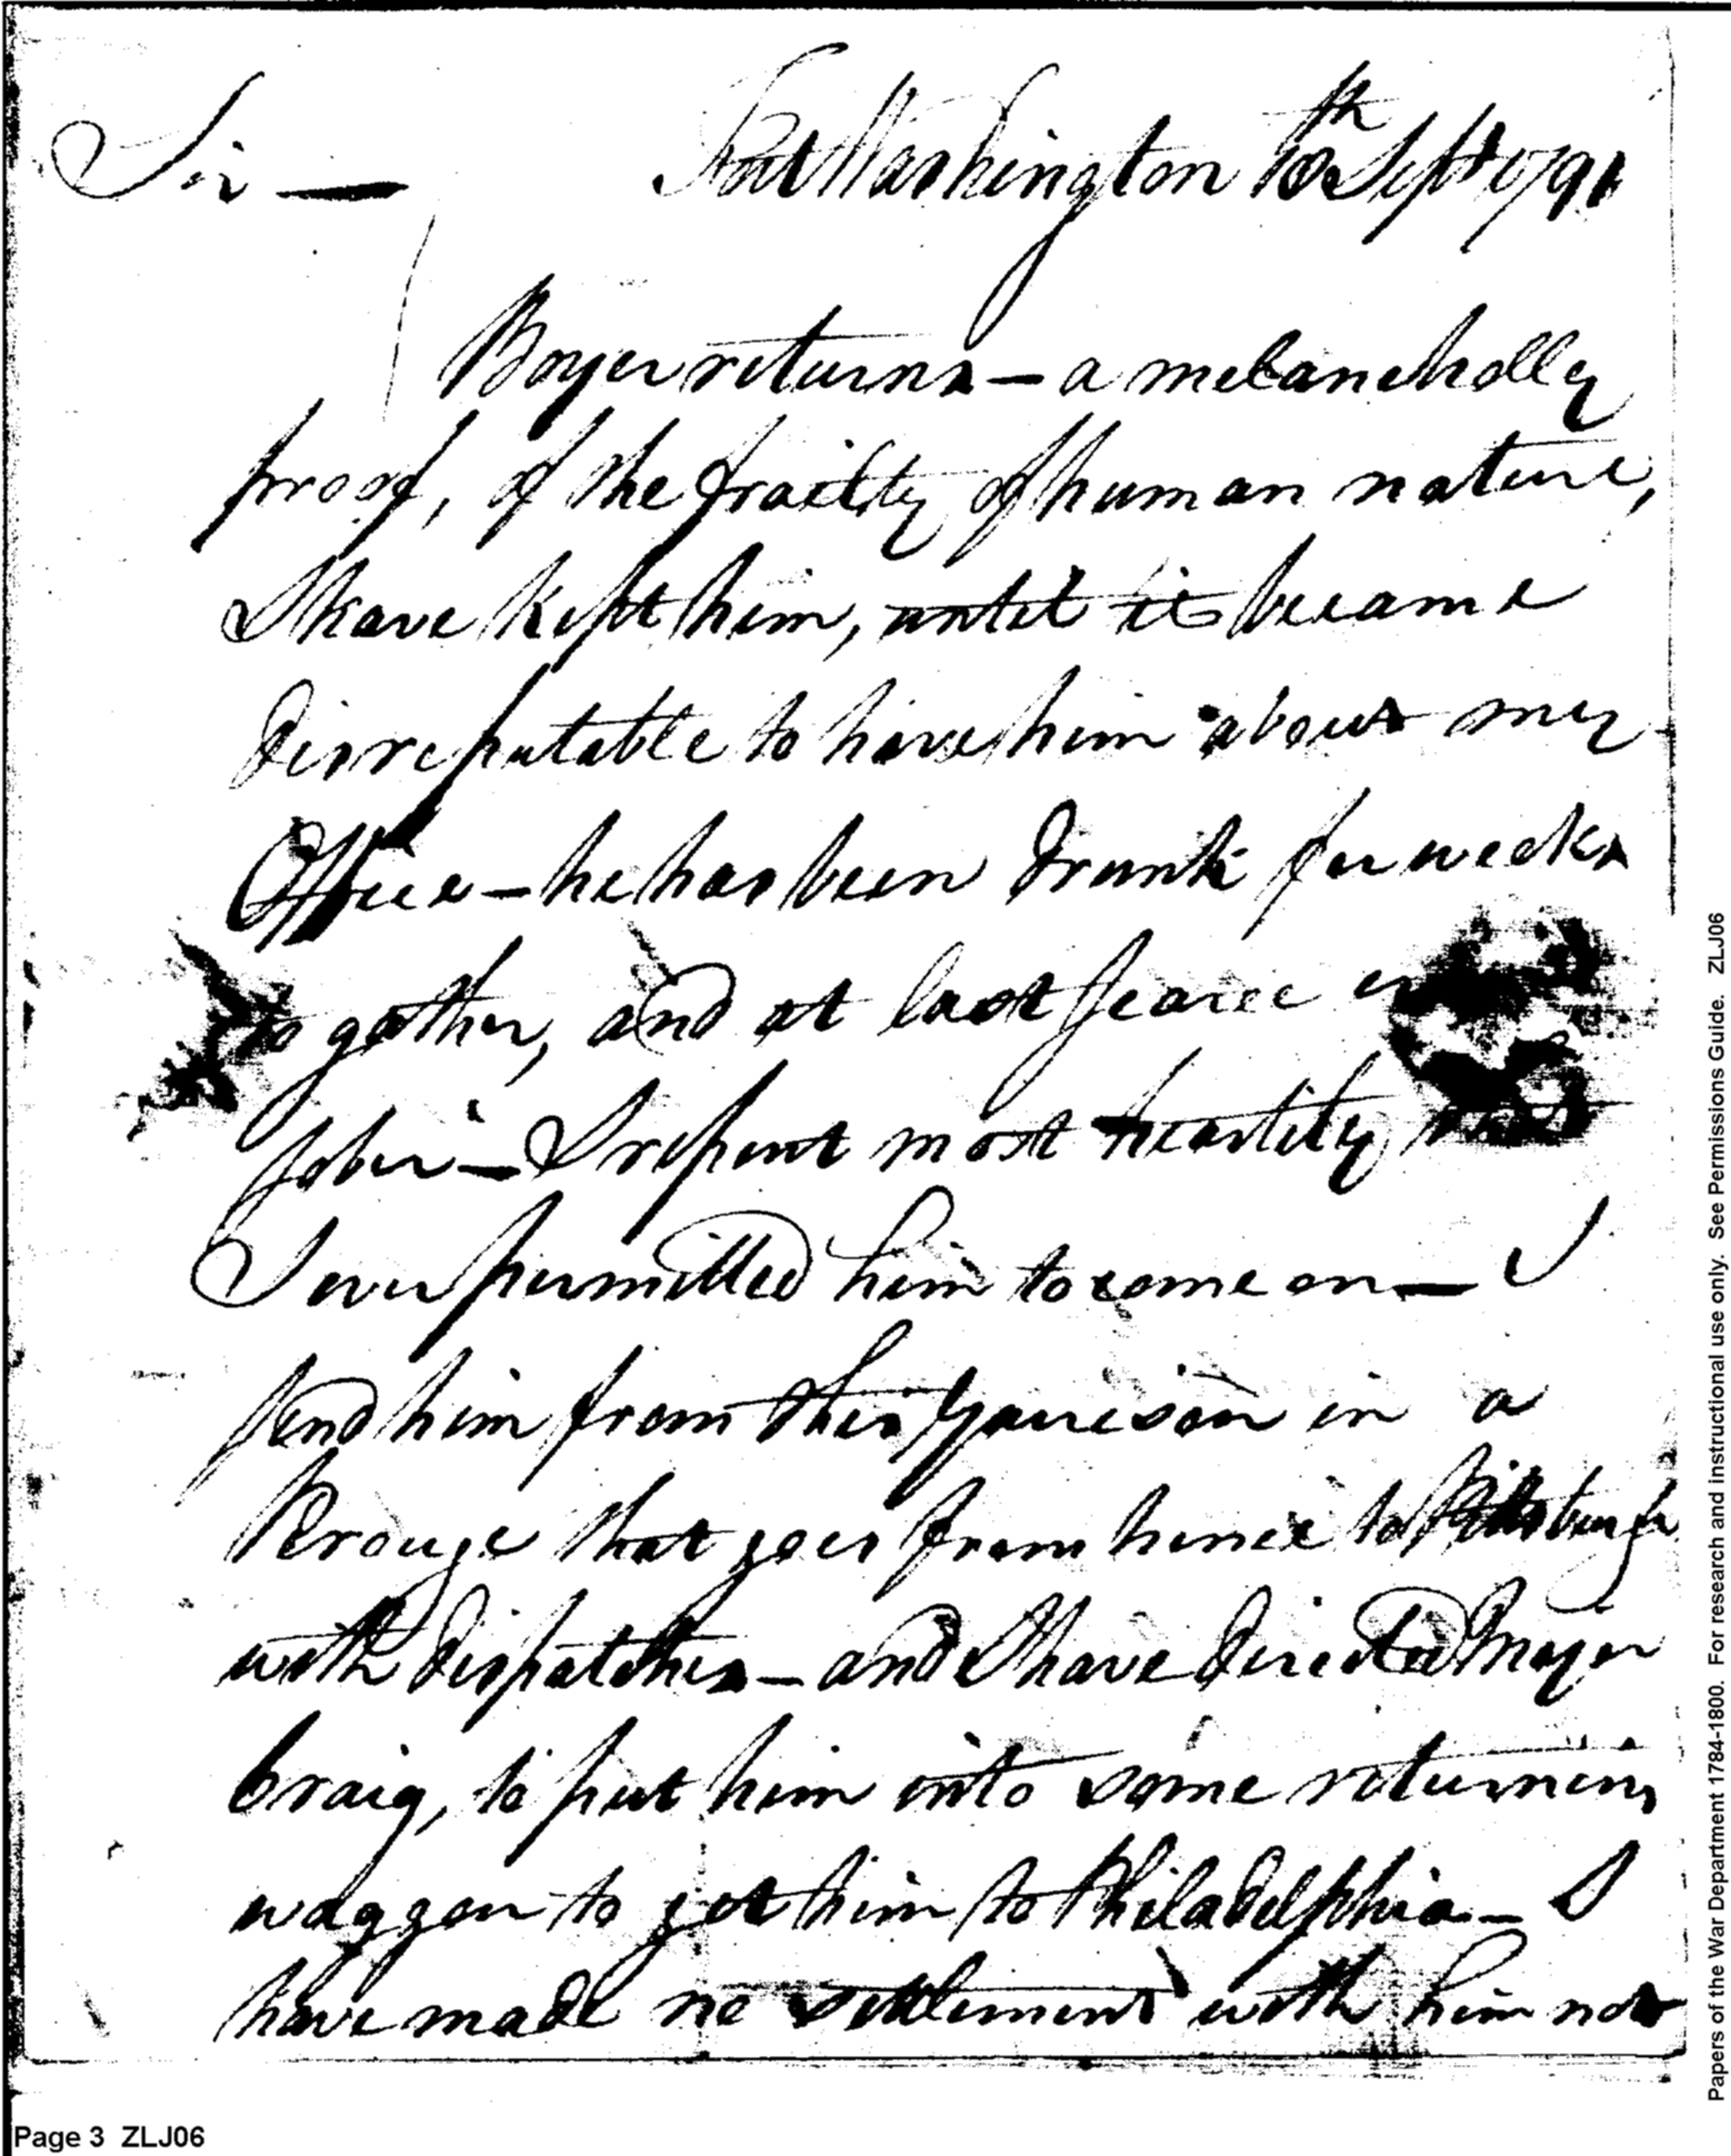 Sir — Fort Washington 18th Sept 1791
Boyer returns — a melancholly
proof, of the frailty of human nature,
I have kept him, until it became
disreputable to have him about my
Office — he has been drunk for weeks
to gether, and at last scarce
sober — I repent most heartily
I ever permitted him to come on — I
send him from this Garrison in a
Perouge that goes from hence to Pittsburgh
with dispatches — and I have directed Major
Craig, to put him into some returning
waggon to get him to Philadelphia — I
have made no settlement with him nor
Page 3 ZLJ06
Papers of the War Department 1784-1800. For research and instructional use only. See Permissions Guide. ZLJ06